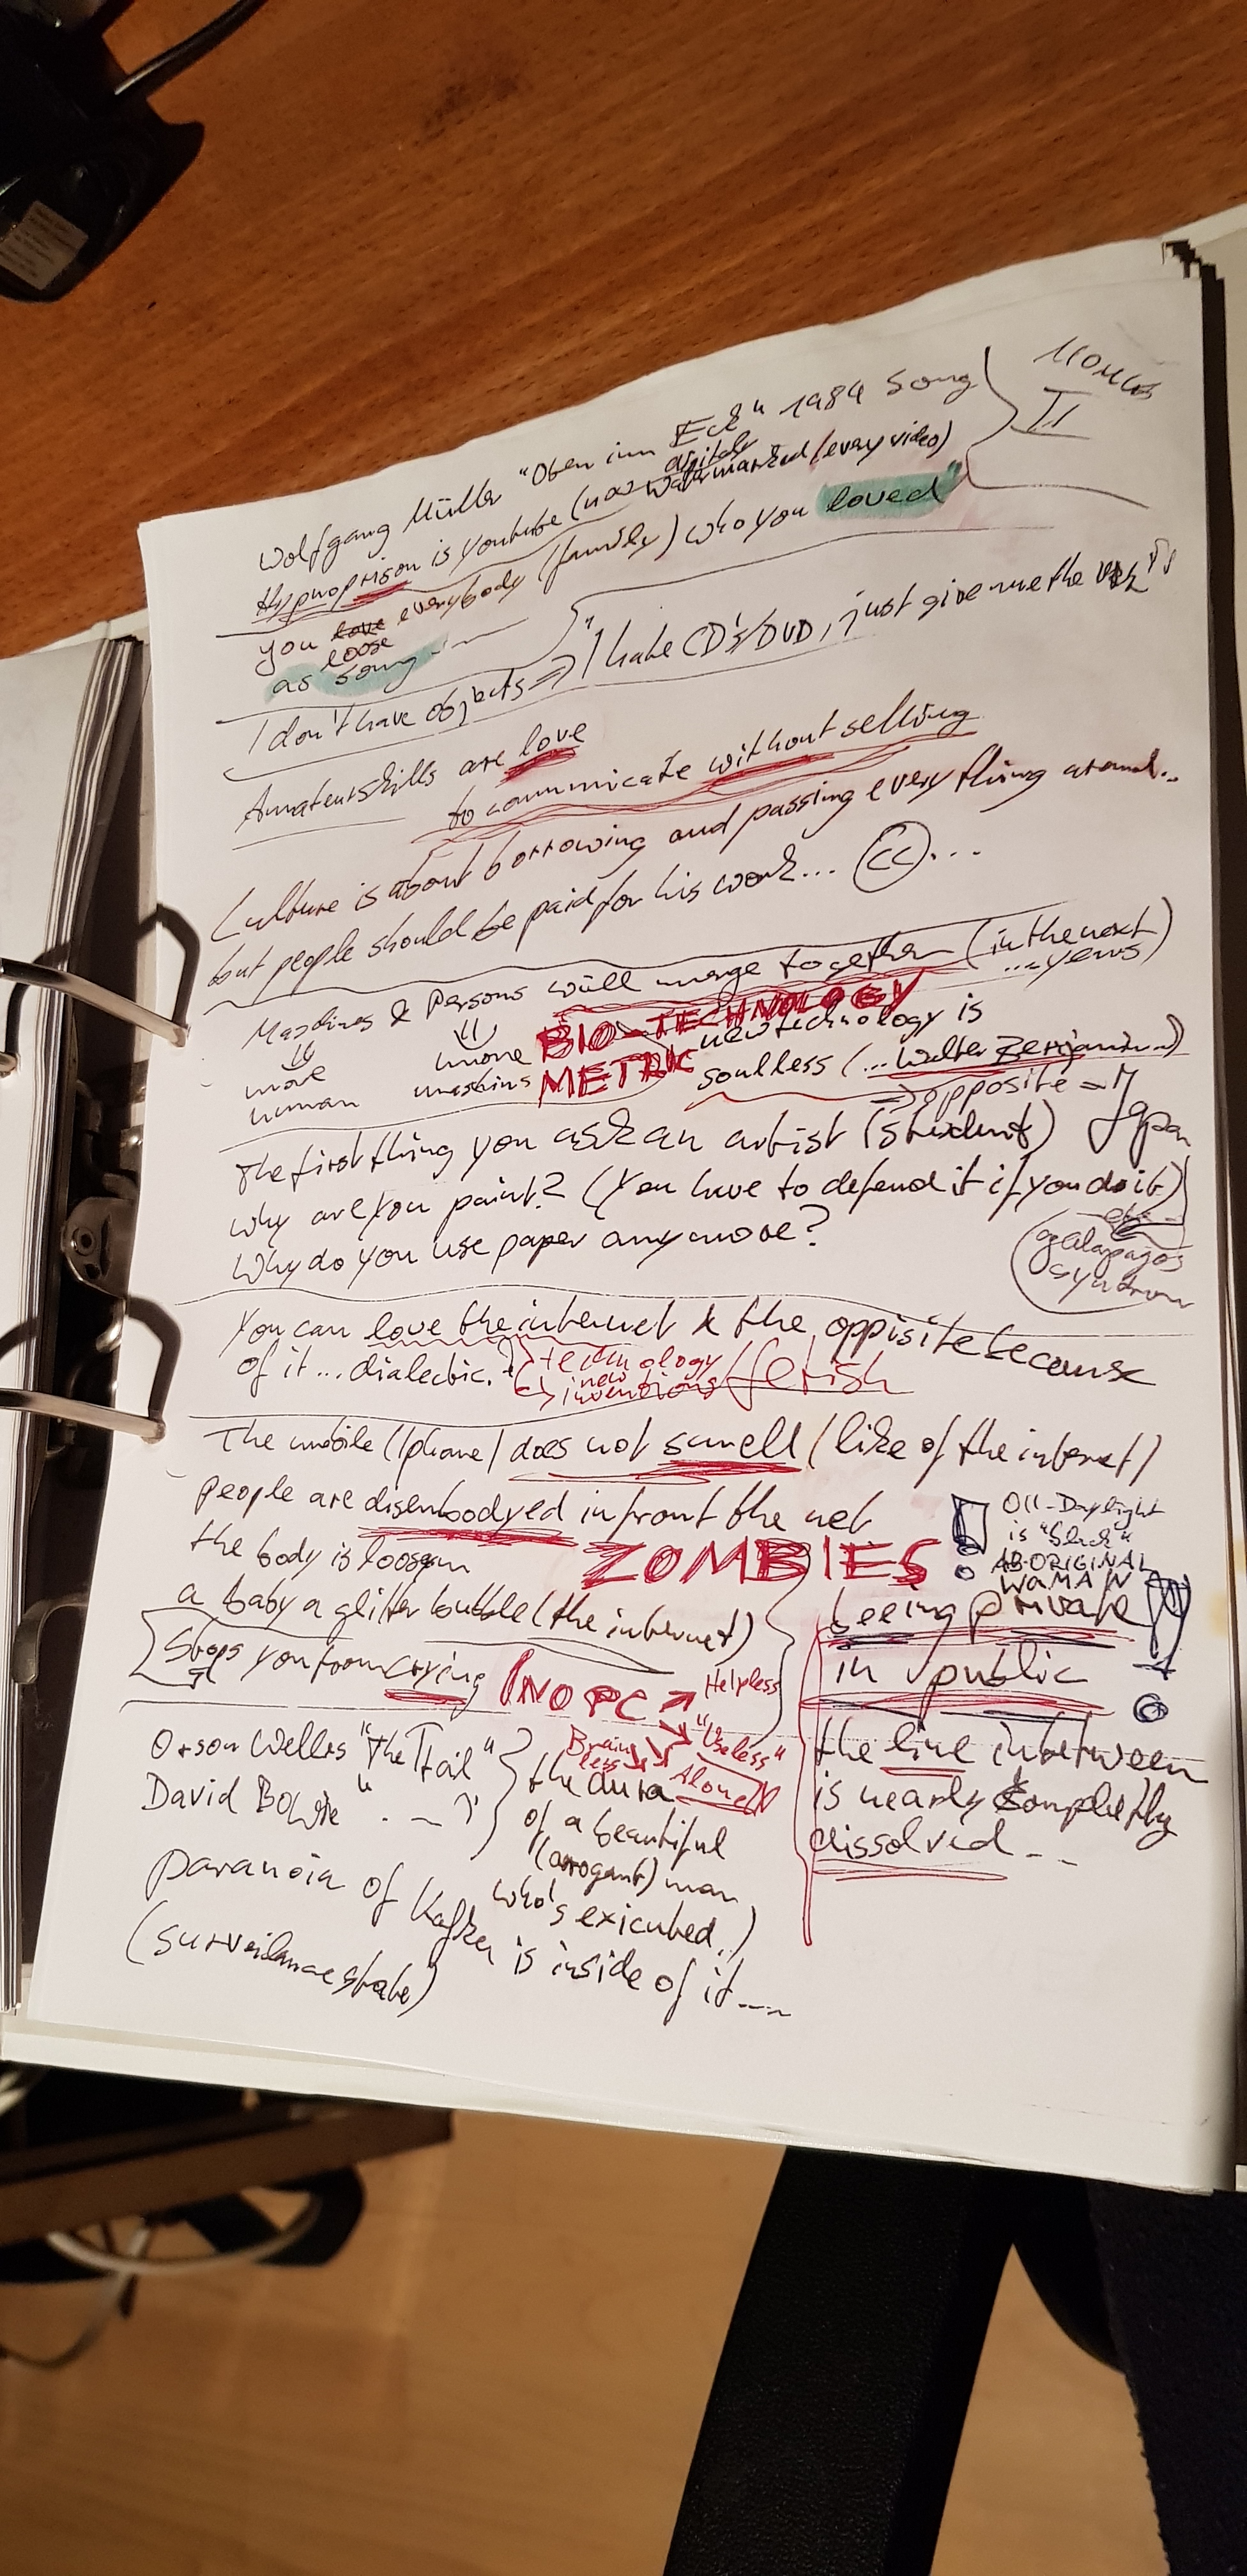 Wolfgang Müller "Oben im Eck" 1984 Song
Hypnoprison is youtube (now digitaly watermarked (every video)
II
you love loose everybody (family) who you loved"
as song
I don't have objects => "I hate CD's/DVD, just give me the
Amateurskills are love
to communicate without selling
Culture is about borrowing and passing everything around...
but people should be paid for his work... (cc)...
Maschines & Persons will merge together (in the next ... years)
more human
more maschins
BIO-TECHNOLOGY
METRIC
new technology is
soulless (... Walter Benjamin...)
=> opposite =
Japan
The first thing you ask an artist (student)
why are you paint? (You have to defend it if you do it)
Why do you use paper anymore?
galapagos
syndrom
You can love the internet & the oppisite because
of it... dialectic.
technology
new
inventions
fetish
The mobile (Iphone) does not smell (like of the internet)
people are disembodyed infront the net
the body is
ZOMBIES
a baby a glitter bubble (the internet)
Stops you from crying
NO PC
Helpless
"Useless"
Brain
less
Alone
Daylight
is "Black"
AB-ORIGINAL
WOMAN
beeing private
in public
the line inbetween
is nearly completly
dissolved...
Orson Welles "The Trail"
David Bowie "
the aura
of a beautiful
(arrogant) man
who's exicuted.)
paranoia of Kafka is inside of it....
(surveilance state)